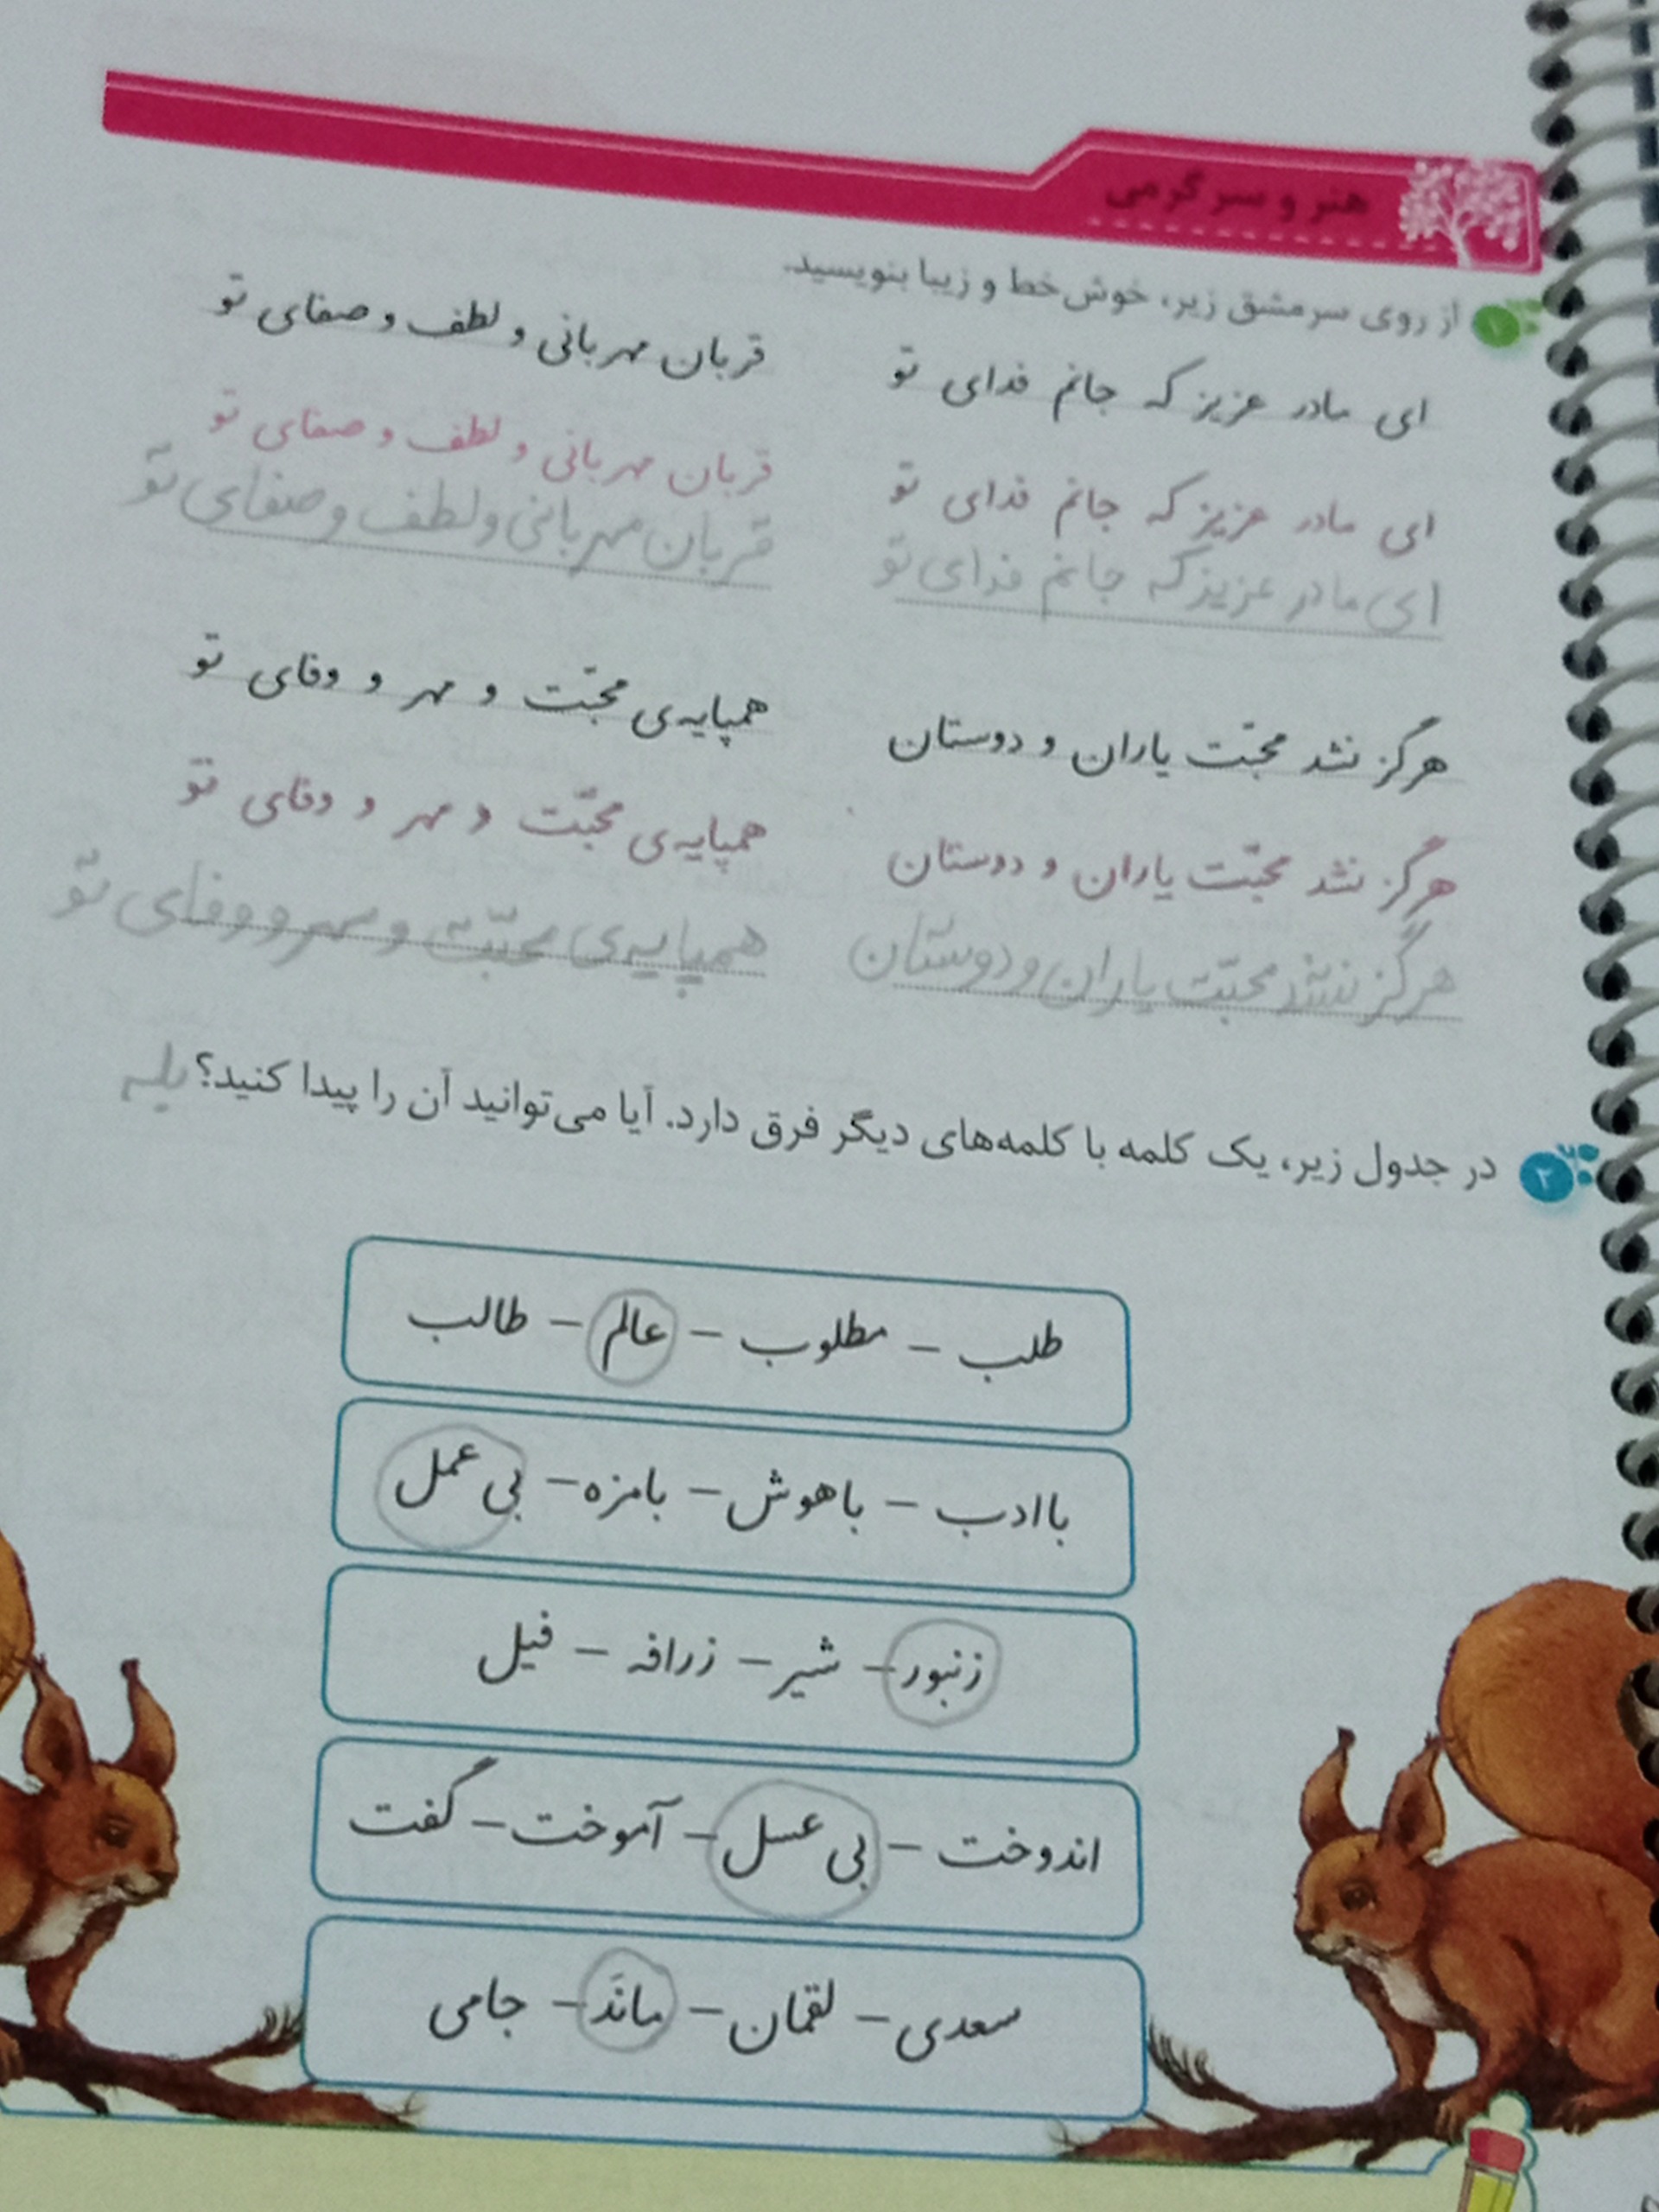 هنر و سرگرمی
۱ از روی سرمشق زیر، خوش‌خط و زیبا بنویسید.
ای مادر عزیز که جانم فدای تو قربان مهربانی و لطف و صفای تو
ای مادر عزیز که جانم فدای تو قربان مهربانی و لطف و صفای تو
ای مادر عزیز که جانم فدای تو قربان مهربانی و لطف و صفای تو
هرگز نشد محبّت یاران و دوستان همپایه‌ی محبّت و مهر و وفای تو
هرگز نشد محبّت یاران و دوستان همپایه‌ی محبّت و مهر و وفای تو
هرگز نشد محبّت یاران و دوستان همپایه‌ی محبّت و مهر و وفای تو
۲ در جدول زیر، یک کلمه با کلمه‌های دیگر فرق دارد. آیا می‌توانید آن را پیدا کنید؟ بله
طلب – مطلوب – عالم – طالب
باادب – باهوش – بامزه – بی عمل
زنبور – شیر – زرافه – فیل
اندوخت – بی عسل – آموخت – گفت
سعدی – لقمان – مانَد – جامی